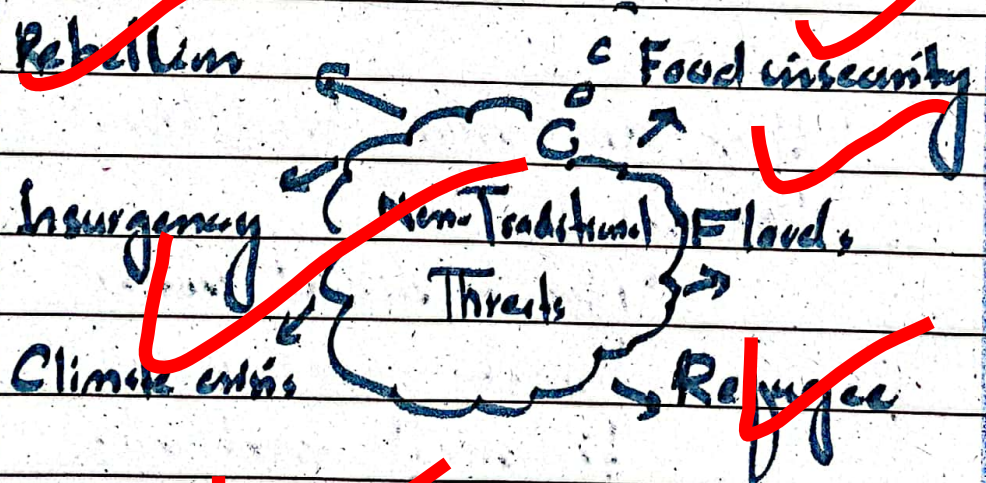 Rebellion
Food insecurity
Insurgency
Non-Traditional
Threats
Floods
Climate crisis
Refugee